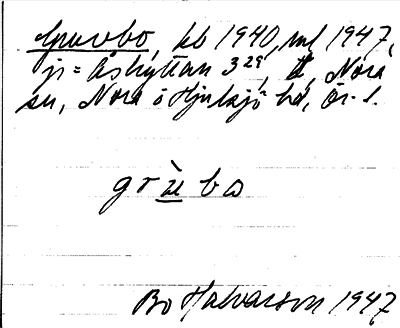 Gruvbo, kb 1940, ml 1947,
jr = Åshyttan 3 29, Nora
sn, Nora o Hjulsjö hd, Ör. l.
grùbo
Bo Halvarson 1947